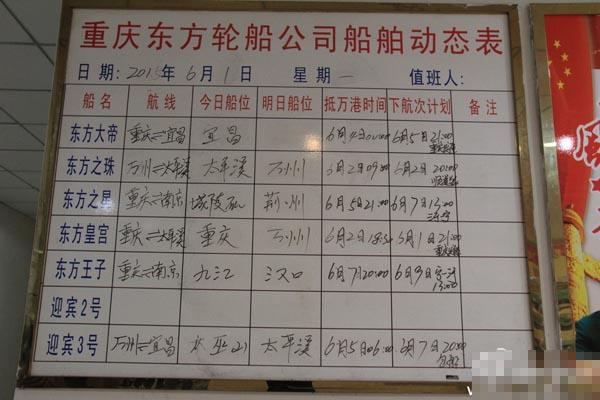 重庆东方轮船公司船舶动态表
日期:2015年6月1日 星期一 值班人:
船名 航线 今日船位 明日船位 抵万港时间 下航次计划 备注
东方大帝 重庆=宜昌 宜昌 6月5日21:00
东方之珠 万州=太平溪 太平溪 万州 6月2日09:00 6月2日20:00
东方之星 重庆=南京 城陵矶 荆州 6月5日21:00 6月7日13:00
东方皇宫 重庆=太平溪 重庆 万州 6月2日18:50 6月1日21:00
东方王子 重庆=南京 九江 汉口 6月7日20:00 6月9日 13:00
迎宾2号
迎宾3号 万州=宜昌 巫山 太平溪 6月5日06:00 6月7日20:00